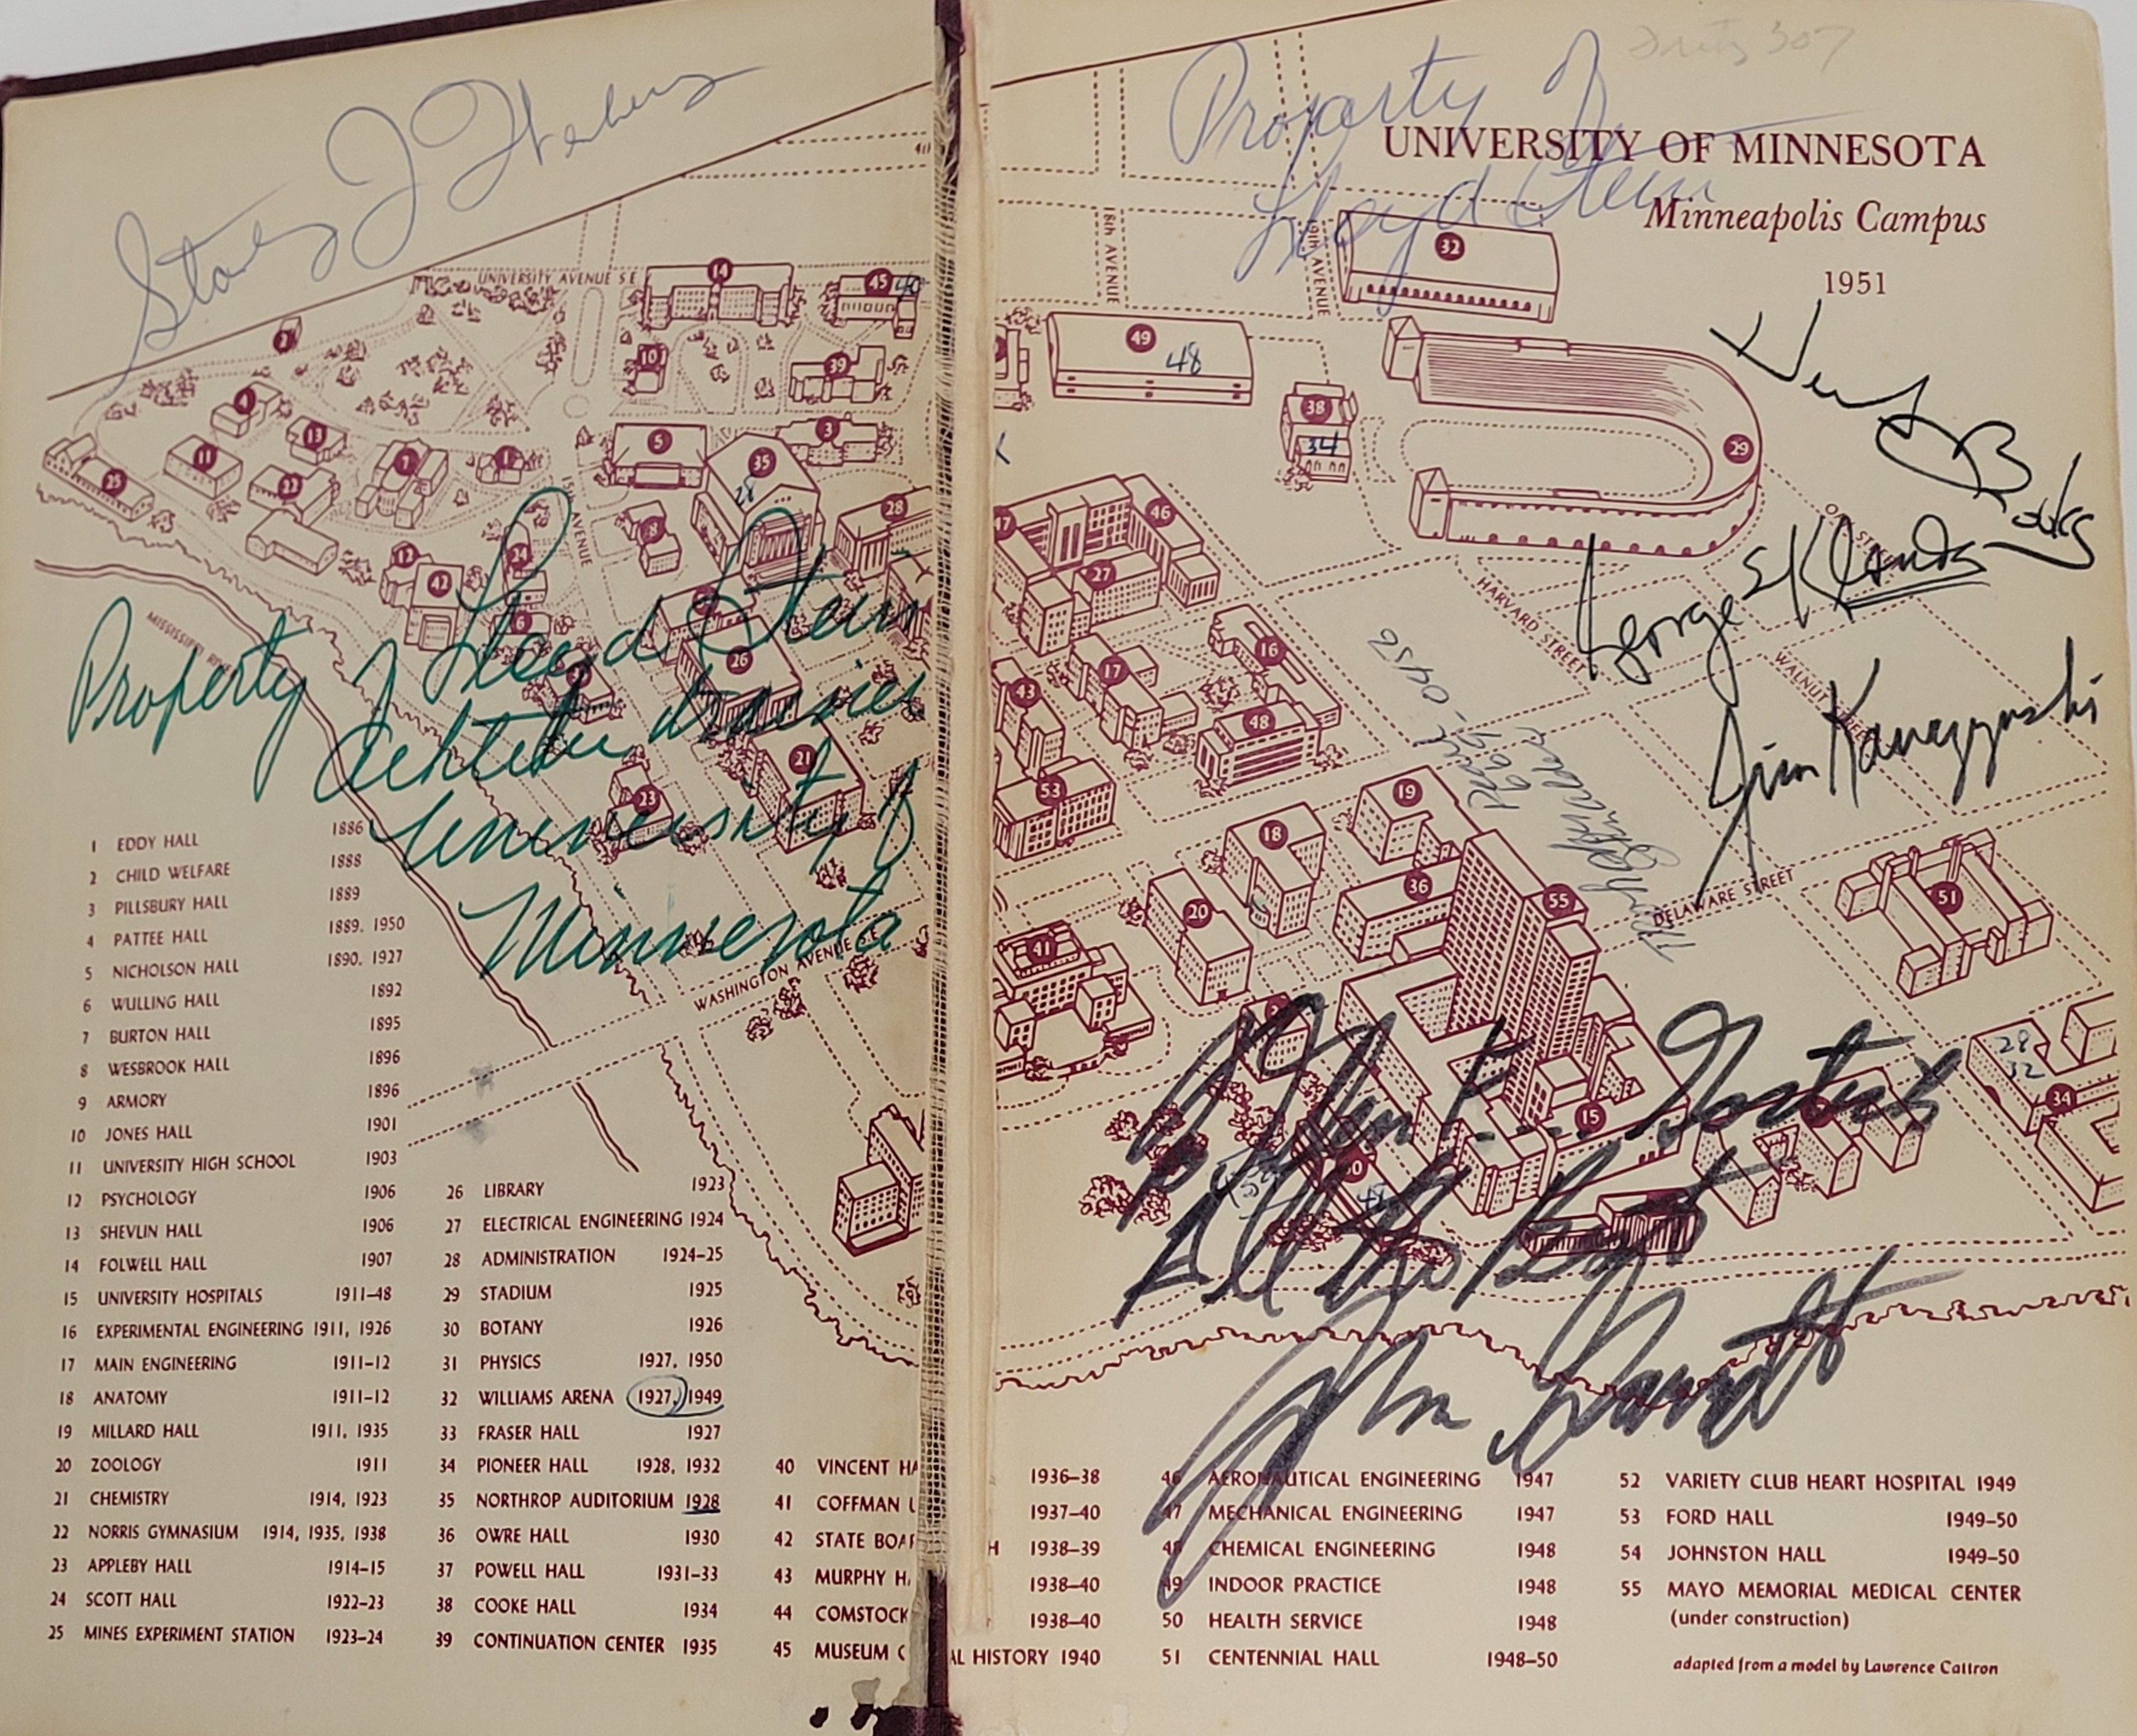 Property of
Lloyd Stein
UNIVERSITY OF MINNESOTA
Minneapolis Campus
1951
UNIVERSITY AVENUE S E
18th AVENUE
AVENUE
15th AVENUE
MISSISSIPPI RIVER
HARVARD STREET
WALNUT
DELAWARE STREET
WASHINGTON AVENUE S.E.
Property of Lloyd Stein
University of
Minnesota
George
Jim
All the Best
John
48
34
28
28
32
1 EDDY HALL 1886
2 CHILD WELFARE 1888
3 PILLSBURY HALL 1889
4 PATTEE HALL 1889, 1950
5 NICHOLSON HALL 1890, 1927
6 WULLING HALL 1892
7 BURTON HALL 1895
8 WESBROOK HALL 1896
9 ARMORY 1896
10 JONES HALL 1901
11 UNIVERSITY HIGH SCHOOL 1903
12 PSYCHOLOGY 1906
13 SHEVLIN HALL 1906
14 FOLWELL HALL 1907
15 UNIVERSITY HOSPITALS 1911-48
16 EXPERIMENTAL ENGINEERING 1911, 1926
17 MAIN ENGINEERING 1911-12
18 ANATOMY 1911-12
19 MILLARD HALL 1911, 1935
20 ZOOLOGY 1911
21 CHEMISTRY 1914, 1923
22 NORRIS GYMNASIUM 1914, 1935, 1938
23 APPLEBY HALL 1914-15
24 SCOTT HALL 1922-23
25 MINES EXPERIMENT STATION 1923-24
26 LIBRARY 1923
27 ELECTRICAL ENGINEERING 1924
28 ADMINISTRATION 1924-25
29 STADIUM 1925
30 BOTANY 1926
31 PHYSICS 1927, 1950
32 WILLIAMS ARENA 1927, 1949
33 FRASER HALL 1927
34 PIONEER HALL 1928, 1932
35 NORTHROP AUDITORIUM 1928
36 OWRE HALL 1930
37 POWELL HALL 1931-33
38 COOKE HALL 1934
39 CONTINUATION CENTER 1935
40 VINCENT HA 1936-38
41 COFFMAN 1937-40
42 STATE BOA H 1938-39
43 MURPHY H 1938-40
44 COMSTOCK 1938-40
45 MUSEUM AL HISTORY 1940
46 AERONAUTICAL ENGINEERING 1947
47 MECHANICAL ENGINEERING 1947
48 CHEMICAL ENGINEERING 1948
49 INDOOR PRACTICE 1948
50 HEALTH SERVICE 1948
51 CENTENNIAL HALL 1948-50
52 VARIETY CLUB HEART HOSPITAL 1949
53 FORD HALL 1949-50
54 JOHNSTON HALL 1949-50
55 MAYO MEMORIAL MEDICAL CENTER
(under construction)
adapted from a model by Lawrence Cattron